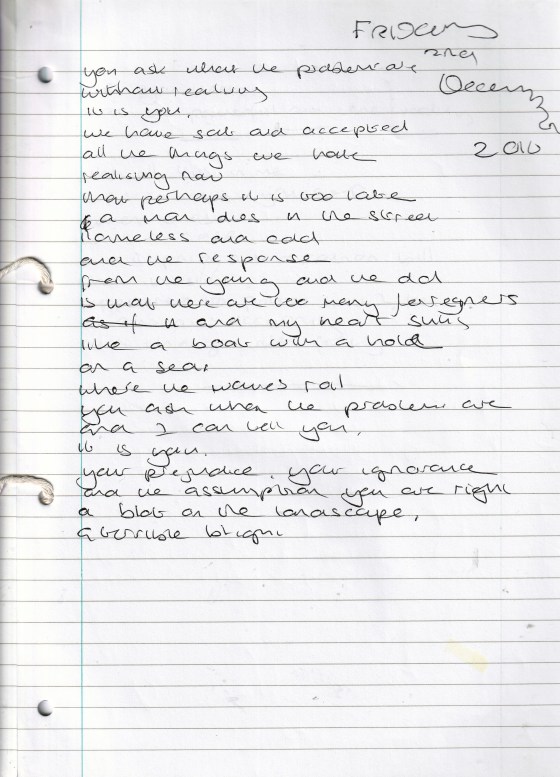 FRIDAY
2nd
December
2016
you ask what the problems are
without realising
it is you.
we have sat and accepted
all the things we hate
realising now
that perhaps it is too late
a man dies in the street
nameless and cold
and the response
from the young and the old
is that there are too many foreigners
as if it and my heart sinks
like a boat with a hole
on a sea,
where the waves roll
you ask what the problems are
and I can tell you,
it is you.
your prejudice, your ignorance
and the assumption you are right
a blot on the landscape,
a terrible blight.